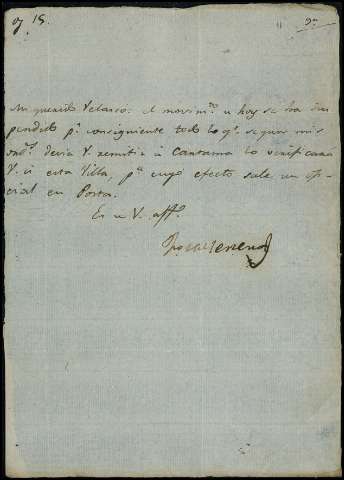 oy 18.
Mi querido Velasco: el movim.to de hoy se ha sus
pendido p.r consiguiente todo lo q.e segun mis
ord.s devia V. remitir á Cantama lo verificará
V. á esta Villa, p.a cuyo efecto sale un ofi-
cial en Posta.
Es de V. aff.o